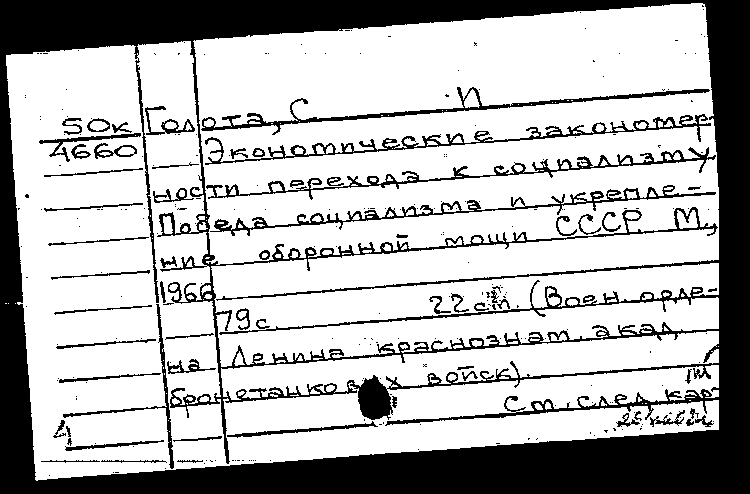 50к Голота, С И
4660 Экономические закономер-
ности перехода к социализму.
Победа социализма и укрепле-
ние оборонной мощи СССР. М.,
1966.
79с. 22см. (Воен. орде-
на Ленина краснознам. акад.
бронетанковых войск).
См. след. кар
4